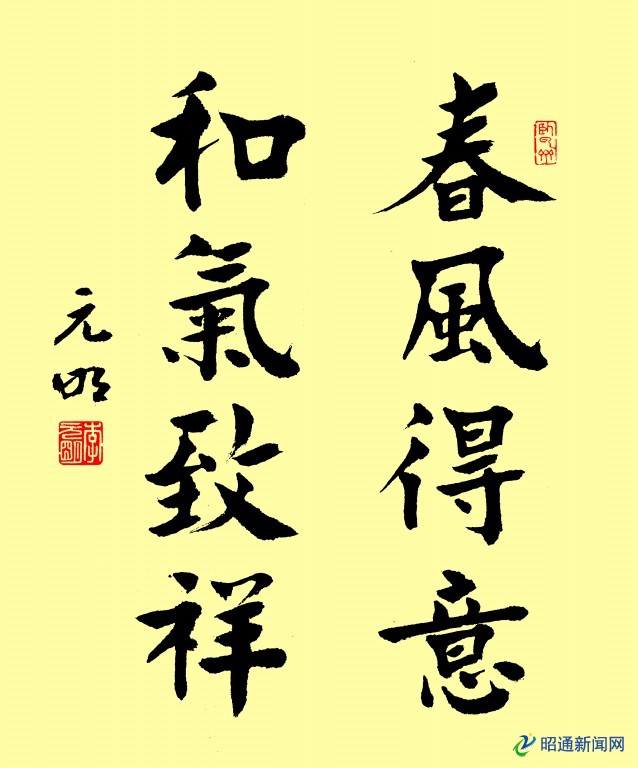 春風得意
和氣致祥
元明
昭通新闻网